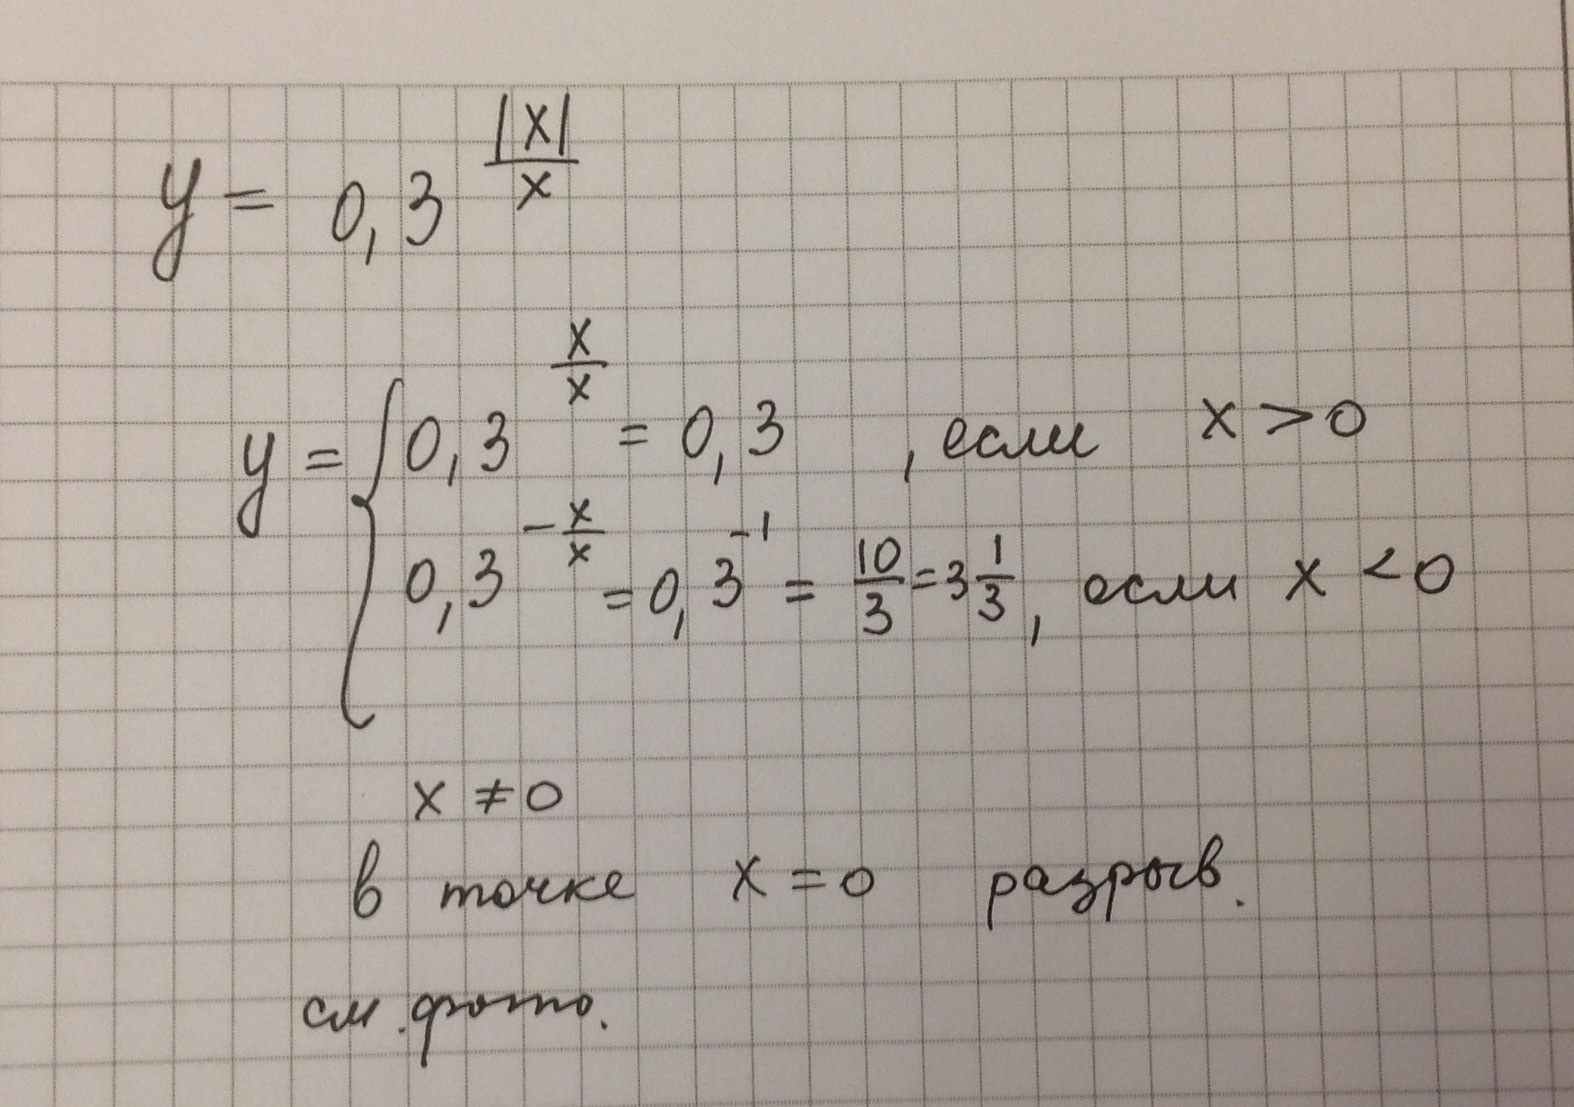 y = 0,3^{\frac{|x|}{x}}
y = \begin{cases} 0,3^{\frac{x}{x}} = 0,3 , если x > 0 \\ 0,3^{-\frac{x}{x}} = 0,3^{-1} = \frac{10}{3} = 3\frac{1}{3}, если x < 0 \end{cases}
x ≠ 0
в точке x = 0 разрыв.
см. фото.